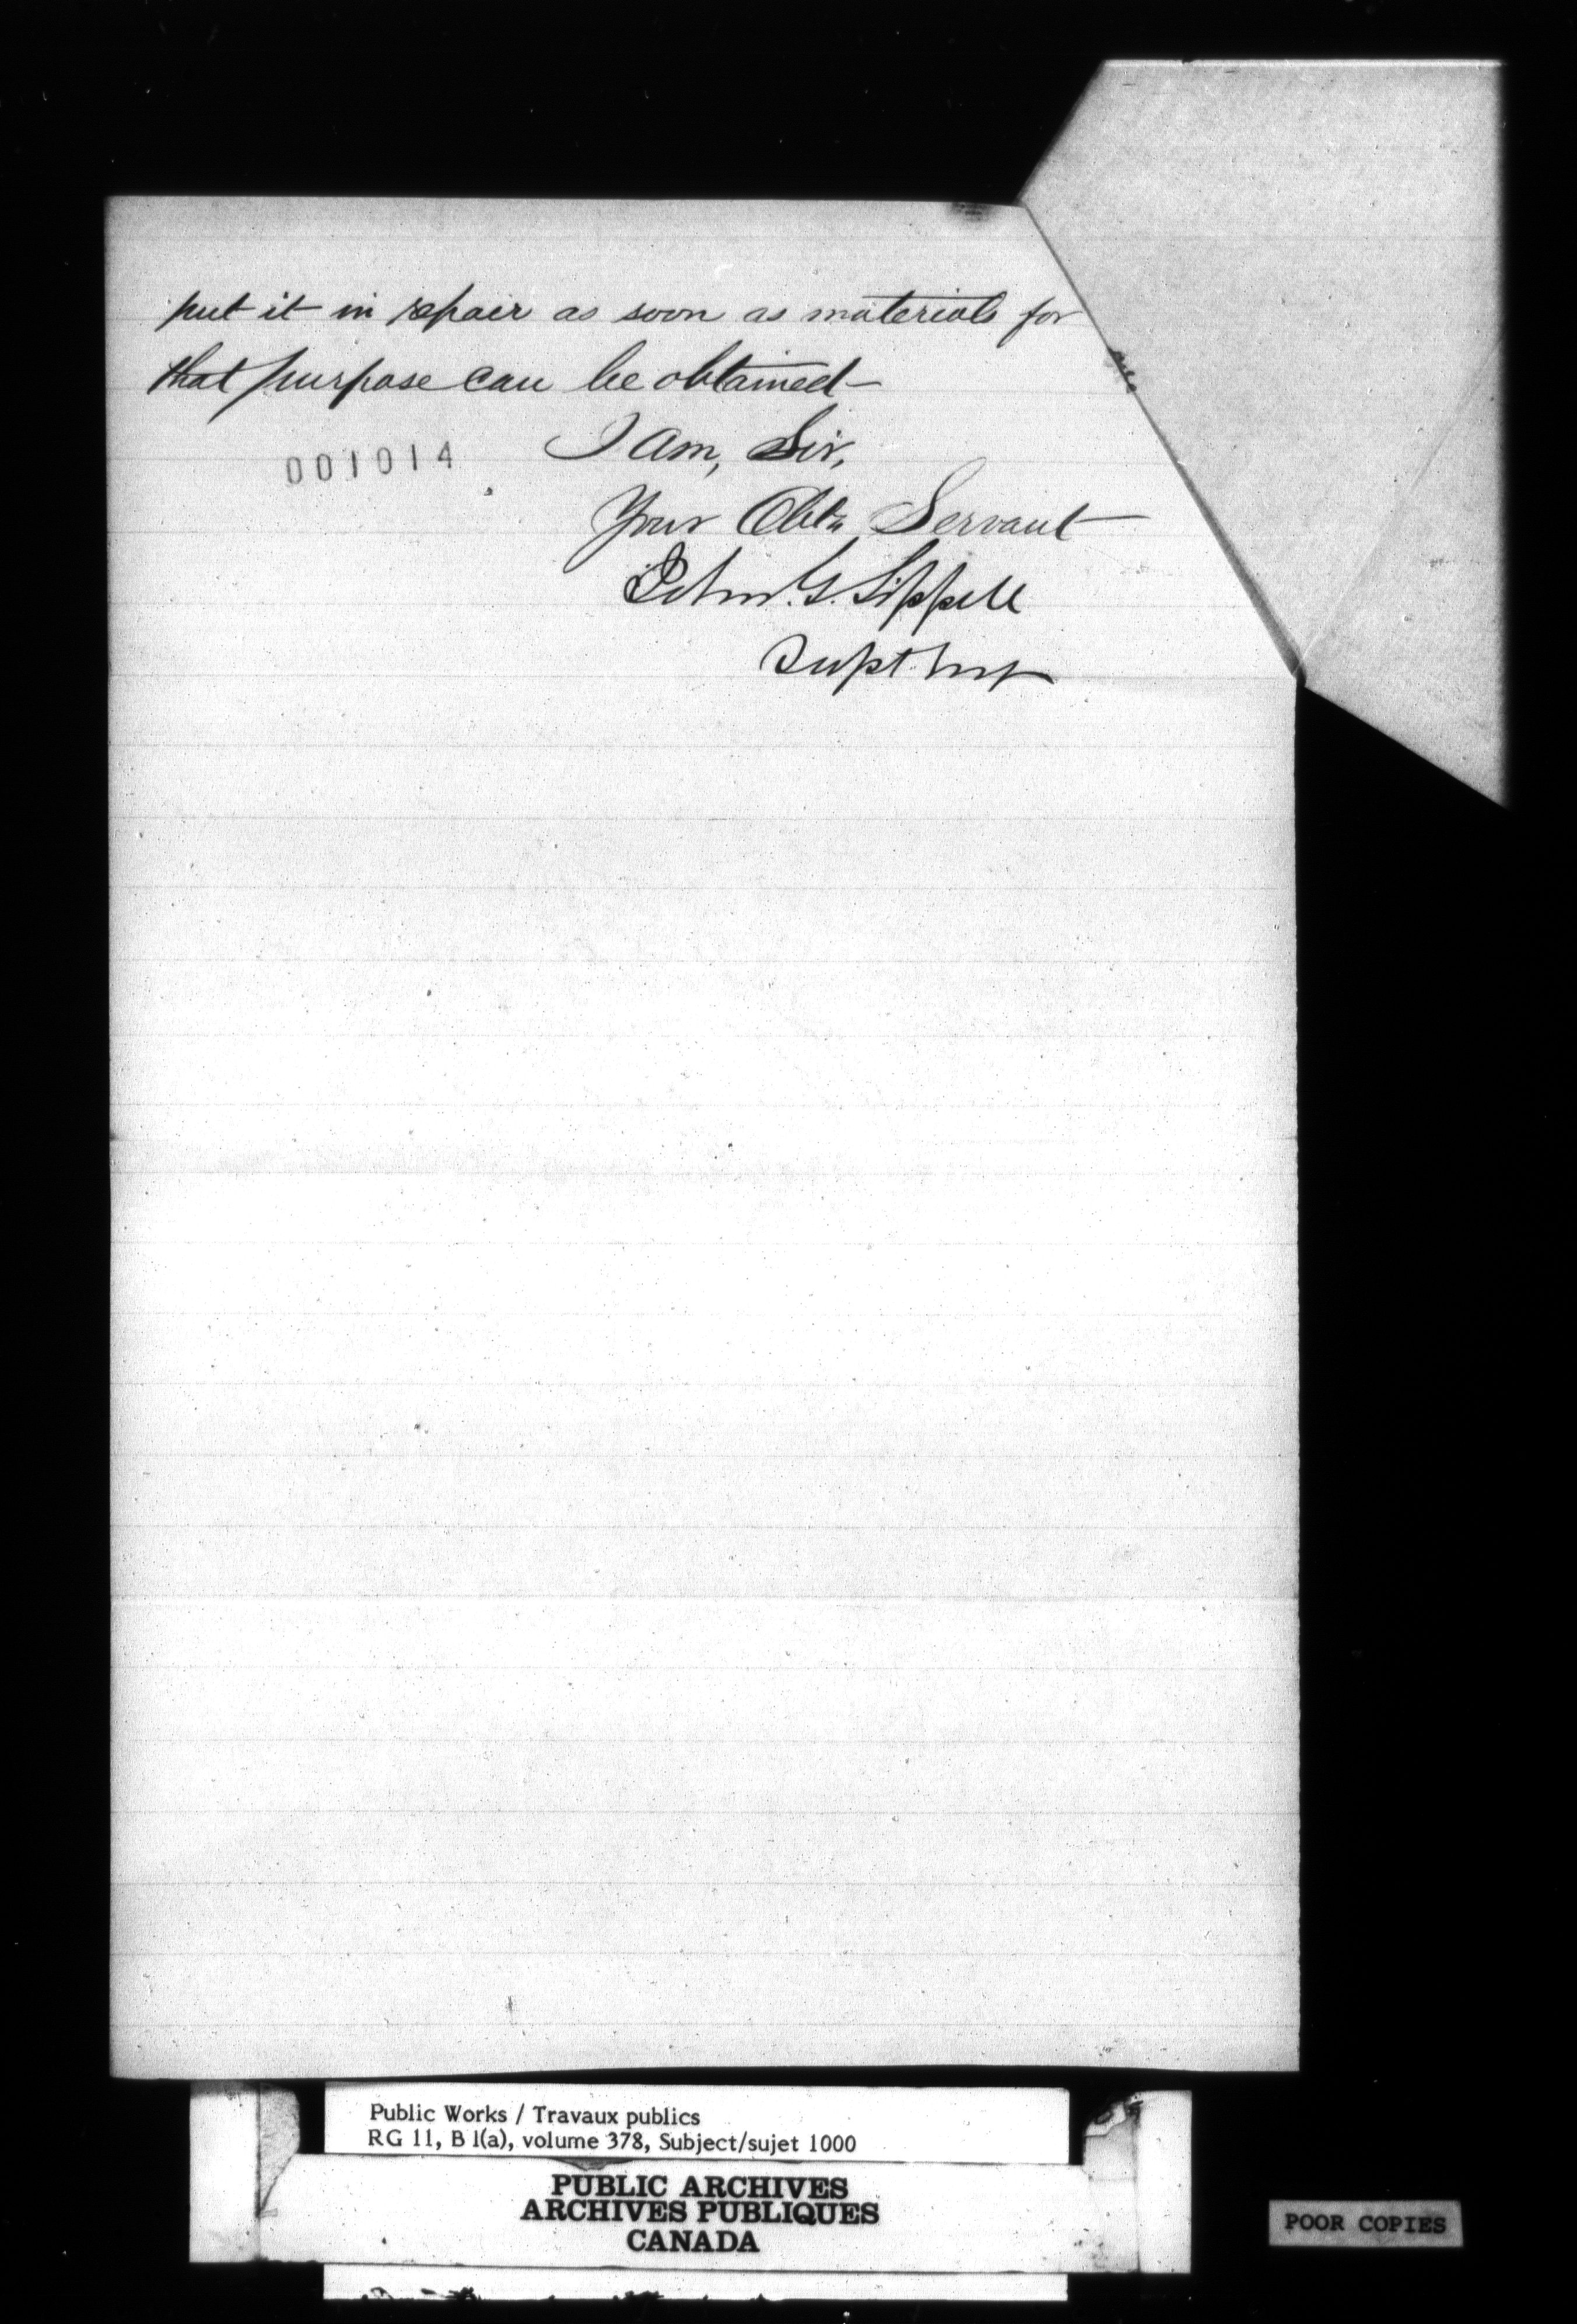 put it in repair as soon as materials for
that purpose can be obtained—
001014
I am, Sir,
Your Obt. Servant
John. G. Sippell
Supt
Public Works / Travaux publics
RG 11, B 1(a), volume 378, Subject/sujet 1000
PUBLIC ARCHIVES
ARCHIVES PUBLIQUES
CANADA
POOR COPIES